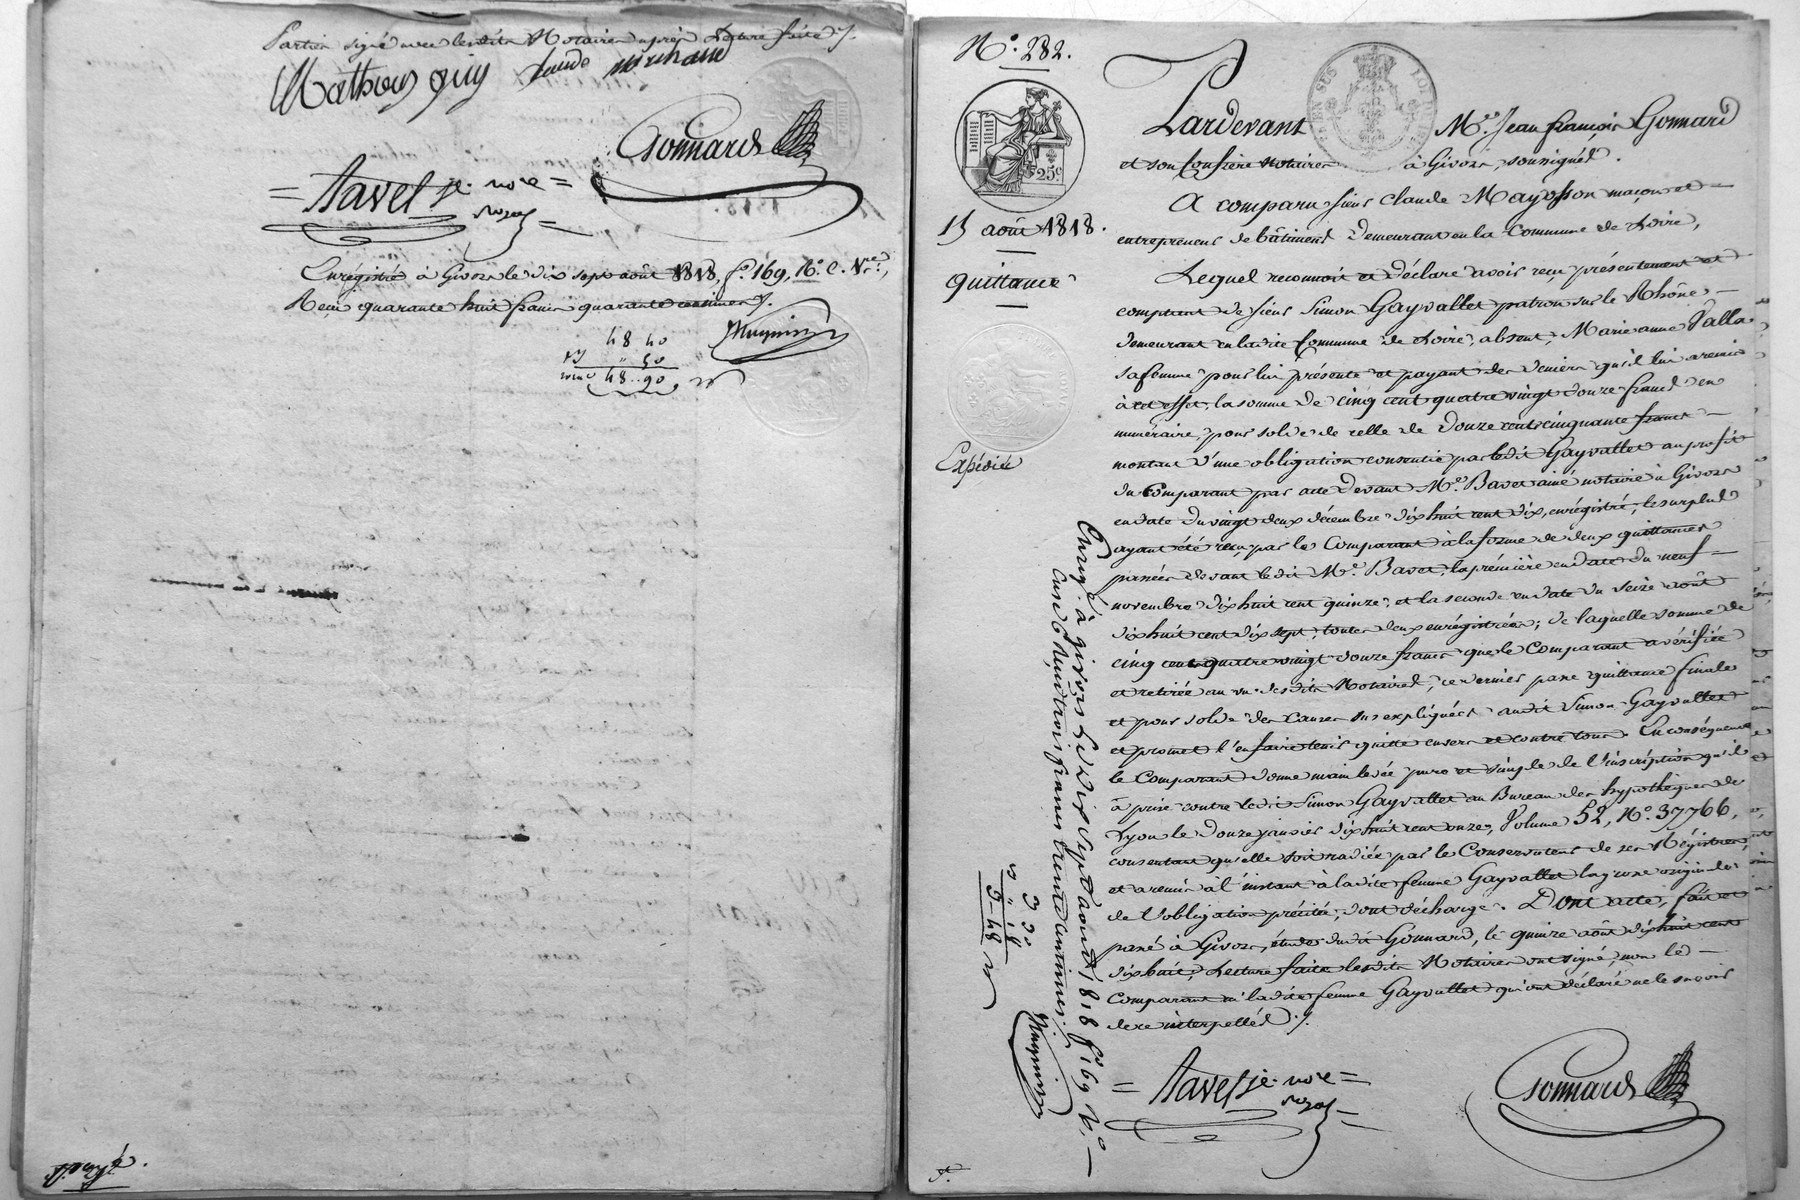 Parties signé avec lesdits Notaires après Lecture faite ./.
Mathieu guy Claude
Gonnard
= Bavet je. nore =
Enregistré à Givors le dix sept août 1818, fo. 169, Ro. C. 1re.,
Reçu quarante huit francs quarante centimes ./.
48 40
" 50
48..90
No. 282.
25c
15 août 1818.
Quittance
Expédié
Pardevant Me. Jean françois Gonnard
et son Confrère Notaires à Givors, soussignés.
A comparu sieur Claude Mayosson maçon et
entrepreneur de bâtiments demeurant en la Commune de Loire,
Lequel reconnoit et déclare avoir reçu présentement et
comptant de sieur Simon Gayvallet patron sur le Rhône
demeurant en ladite Commune de Loire, absent, Marie anne Valla
sa femme pour lui présente et payant des deniers qu'il lui a remis
à cet effet, la somme de cinq cent quatre vingt douze francs en
numéraire, pour solde de celle de douze cents cinquante francs
montant d'une obligation consentie par ledit Gayvallet au profit
du Comparant par acte devant Me. Bavet ainé notaire à Givors
en date du vingt deux décembre dix huit cent dix, enregistré, le surplus
ayant été reçu par le Comparant à la forme de deux quittances
passées devant ledit Me. Bavet, la première en date du neuf
novembre dix huit cent quinze, et la seconde en date du seize août
dix huit cent dix sept, toutes deux enregistrées; de laquelle somme de
cinq cent quatre vingt douze francs que le Comparant a vérifiée
et retirée au vu desdits Notaires, ce dernier passe quittance finale
et pour solde des causes sus expliquées audit Simon Gayvallet
et promet l'en faire tenir quitte envers et contre tous. En conséquence
le Comparant donne main levée pure et simple de l'inscription qu'il
à prise contre ledit Simon Gayvallet au Bureau des hypothèques de
Lyon le douze janvier dix huit cent onze, Volume 52, No. 37766,
consentant qu'elle soit radiée par le Conservateur de ses Régistres,
et a remis à l'instant à ladite femme Gayvallet la grosse originale
de l'obligation précitée, dont décharge. Dont acte, fait et
passé à Givors, étude dudit Gonnard, le quinze août dix huit cent
dix huit, Lecture faite lesdits Notaires ont signé, non le
Comparant ni ladite femme Gayvallet qui ont déclaré ne le savoir
de ce interpellés ./.
Enrigé. à givors le dix Sept aout 1818 fo 169 Ro.
Case 6 Reçu trois francs trente centimes.
3 30
" 18
3-48
= Bavet je. nore =
Gonnard